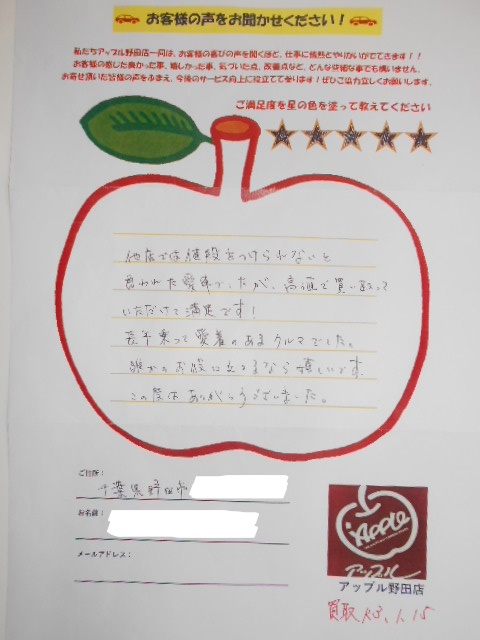 お客様の声をお聞かせください！
私たちアップル野田店一同は、お客様の喜びの声を聞くほど、仕事に情熱とやりがいがでてきます！！
お客様の感じた良かった事、嬉しかった事、気づいた点、改善点など、どんな些細な事でも構いません。
お寄せ頂いた皆様の声をふまえ、今後のサービス向上に役立てて参ります！ぜひご協力宜しくお願いします。
ご満足度を星の色を塗って教えてください
他店では値段をつけられないと
言われた愛車でしたが、高値で買い取って
いただけて満足です！
長年乗って愛着のあるクルマでした。
誰かのお役に立てるなら嬉しいです。
この度はありがとうございました。
ご住所：
千葉県野田市
お名前：
メールアドレス：
Apple
アップル
アップル野田店
買取 R3.1.15